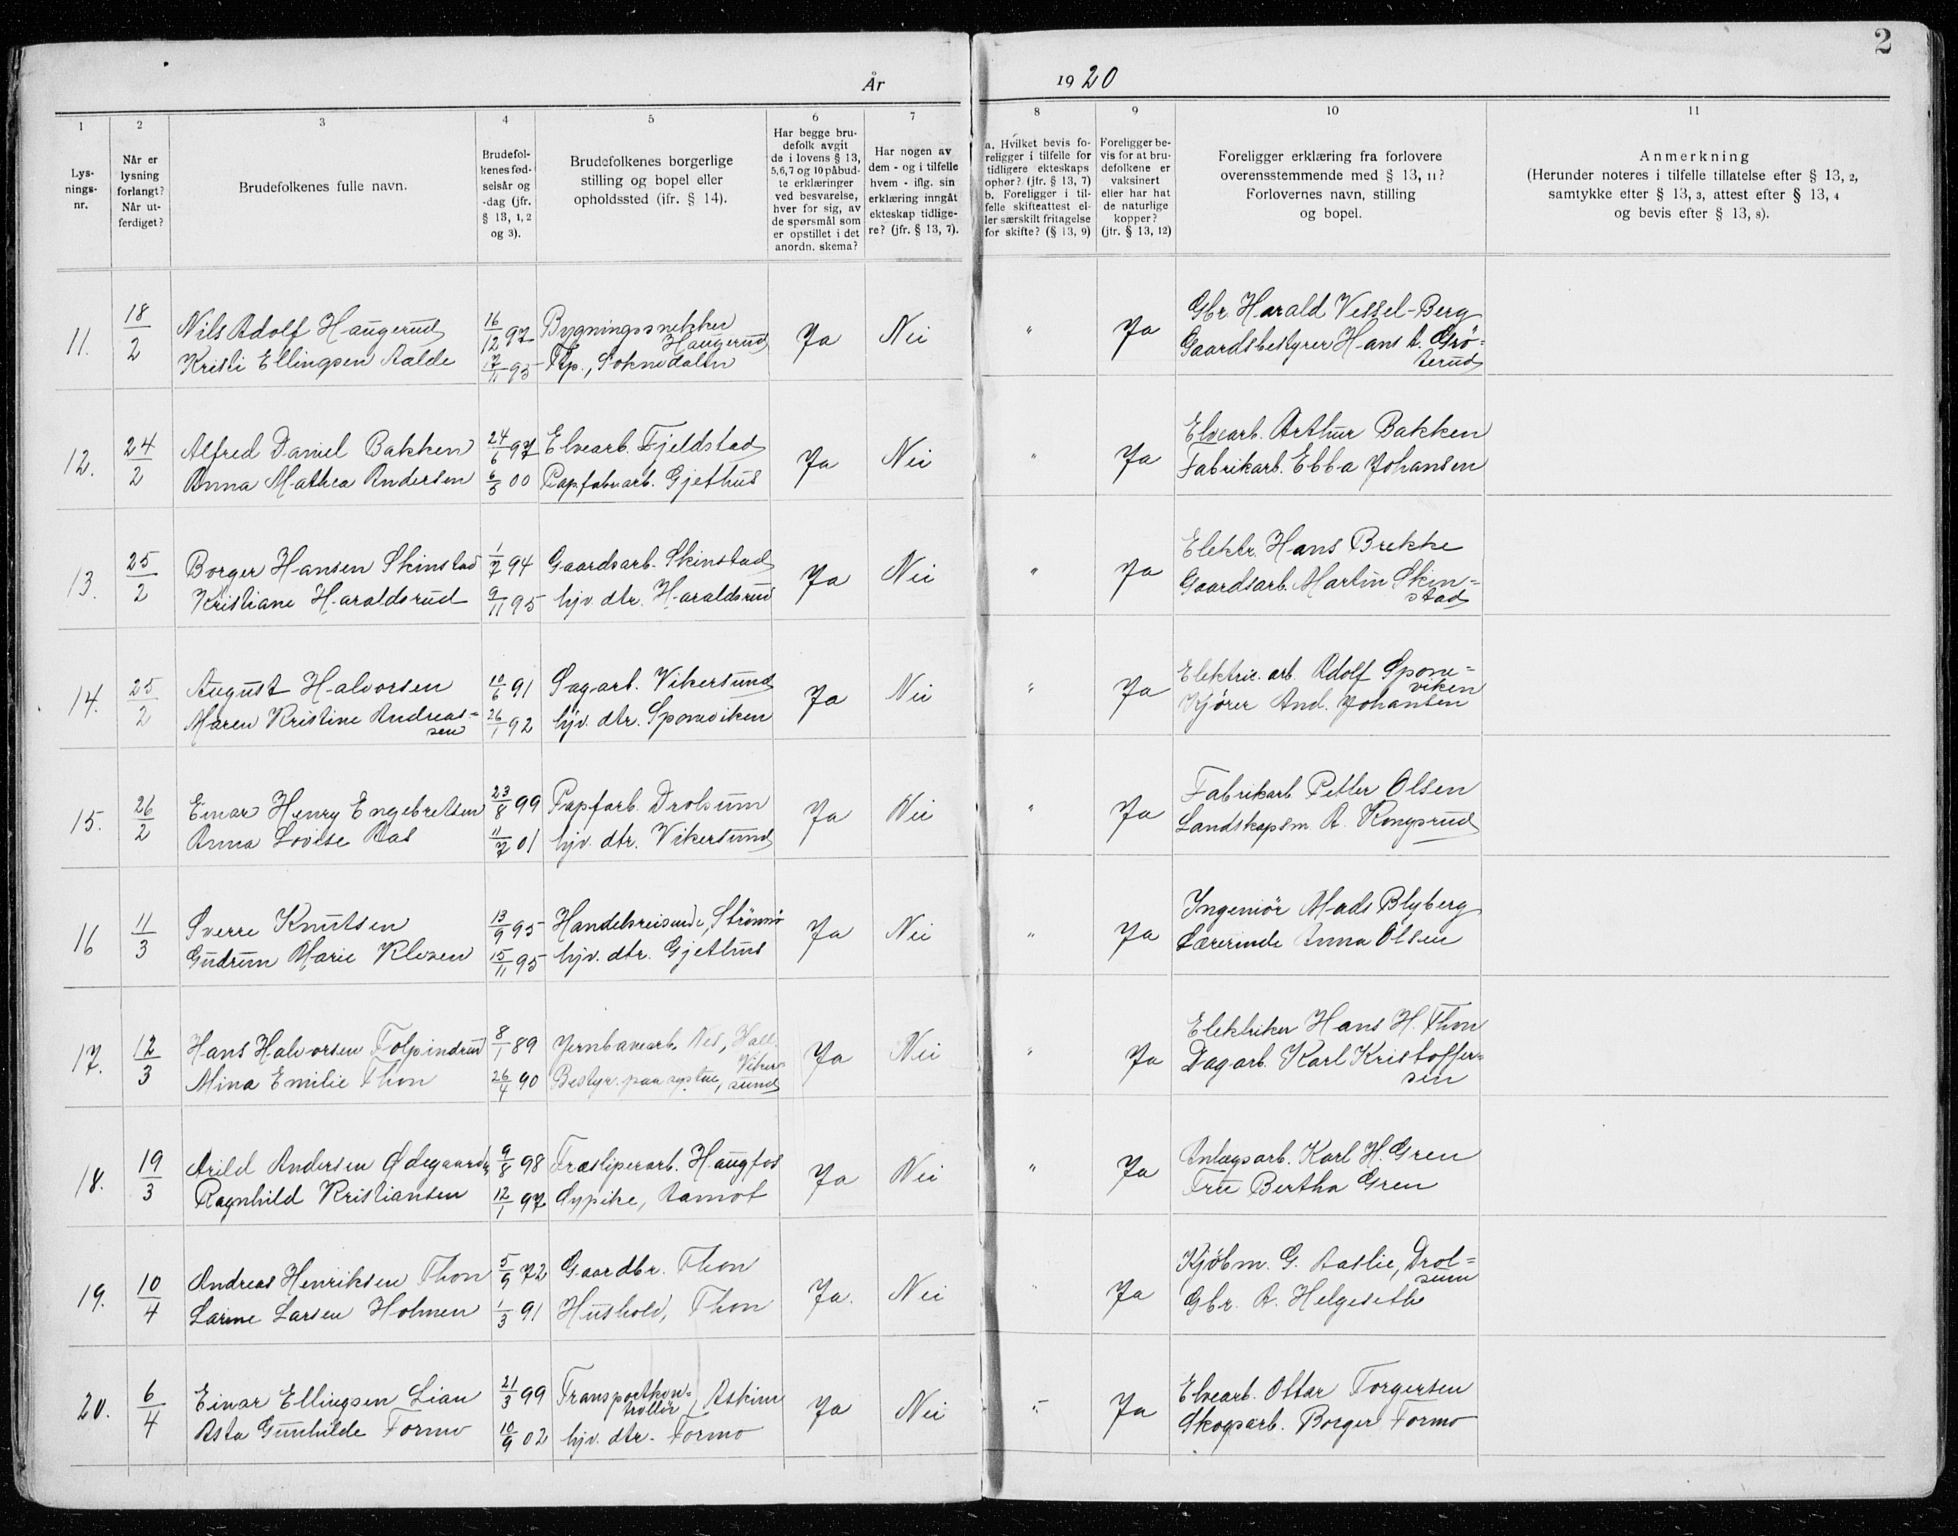 2
År 1920
1 2 3 4 5 6 7 8 9 10 11
Lys-
nings-
nr.
Når er
lysning
forlangt?
Når ut-
ferdiget?
Brudefolkenes fulle navn.
Brudefol-
kenes fød-
selsår og
-dag (jfr.
§ 13, 1, 2
og 3).
Brudefolkenes borgerlige
stilling og bopel eller
opholdssted (ifr. § 14).
Har begge bru-
defolk avgit
de i lovens § 13,
5, 6, 7 og 10 påbud-
te erklæringer
ved besvarelse,
hver for sig, av
de spørsmål som
er opstillet i det
anordn. skema?
Har nogen av
dem - og i tilfelle
hvem - iflg. sin
erklæring inngåt
ekteskap tidlige-
re? (jfr. § 13, 7).
a. Hvilket bevis fo-
religger i tilfelle for
tidligere ekteskaps
ophør? (jfr. § 13, 7)
b. Foreligger i til-
felle skifteattest el-
ler særskilt fritagelse
for skifte? (§ 13, 9)
Foreligger be-
vis for at bru-
defolkene er
vaksinert
eller har hat
de naturlige
kopper?
(jfr. § 13, 12)
Foreligger erklæring fra forlovere
overensstemmende med § 13, 11?
Forlovernes navn, stilling
og bopel.
Anmerkning
(Herunder noteres i tilfelle tillatelse efter § 13, 2,
samtykke efter § 13, 3, attest efter § 13, 4
og bevis efter § 13, 8).
11. 18/2 Nils Adolf Haugerud 16/12 97 Bygningssnekker Haugerud Ja Nei " Ja Gbr. Harald Vessel-Berg
Kristi Ellingsen Aalde 17/11 95 Tp., Soknedalen Gaardsbestyrer Hans A. Grø-
terud
12. 24/2 Alfred Daniel Bakken 24/6 97 Elvearb. Fjeldstad Ja Nei " Ja Elvearb. Arthur Bakken
Anna Mathea Andersen 00 Papfabrarb. Gjethus Fabrikarb. Ebba Johansen
13. 25/2 Borger Hansen Skinstad 1/7 94 Gaardsarb. Skinstad Ja Nei " Ja Elektr. Hans Brekke
Kristiane Haraldsrud 9/11 95 hjv. dtr. Haraldsrud Gaardsarb. Martin Skin-
stad
14. 25/2 August Halvorsen 10/6 91 Sagarb. Vikersund Ja Nei " Ja Elektric. arb. Adolf Spone-
viken
Maren Kristine Andreas-
sen 26/1 92 hjv. dtr. Sponeviken Kjører And. Johansen
15. 26/2 Einar Henry Engebretsen 23/8 99 Papfarb. Drolsum Ja Nei " Ja Fabrikarb Petter Olsen
Anna Lovise Aas 11/7 01 hjv. dtr. Vikersund Landskapsm. A. Kongsrud
16 11/3 Sverre Knutsen 13/9 95 Handelsreisende, Strømsø Ja Nei " Ja Ingeniør Mads Blyberg
Gudrun Marie Klosen 15/11 95 hjv. dtr. Gjethus Lærerinde Anna Olsen
17. 12/3 Hans Halvorsen Tolpindrud 8/1 89 Jernbanearb. Nes, Hall. Ja Nei " Ja Elektriker Hans H. Thon
Mina Emilie Thon 26/4 90 Bestyr. paa systue, Viker-
sund Dagarb. Karl Kristoffer-
sen
18. 19/3 Arild Andersen Ødegaard 9/8 98 Træsliperarb. Haugfos Ja Nei " Ja Anlægsarb. Karl H. Gren
Ragnhild Kristiansen 12/1 97 Sypike, Aamot Fru Bertha Gren
19. 10/4 Andreas Henriksen Thon 5/9 72 Gaardbr. Thon Ja. Nei Ja Kjøbm. G. Aaslie, Drol-
sum
Larine Larsen Holmen 1/3 91 Hushold, Thon Gbr. A. Helgeseth
20. 6/4 Einar Ellingsen Lian 21/3 99 Transportkon-
trollør, Askim Ja Nei " Ja Elvearb. Ottar Torgersen
Asta Gunhilde Formo 10/9 02 hjv. dtr. Formo Skogsarb. Borger Formo